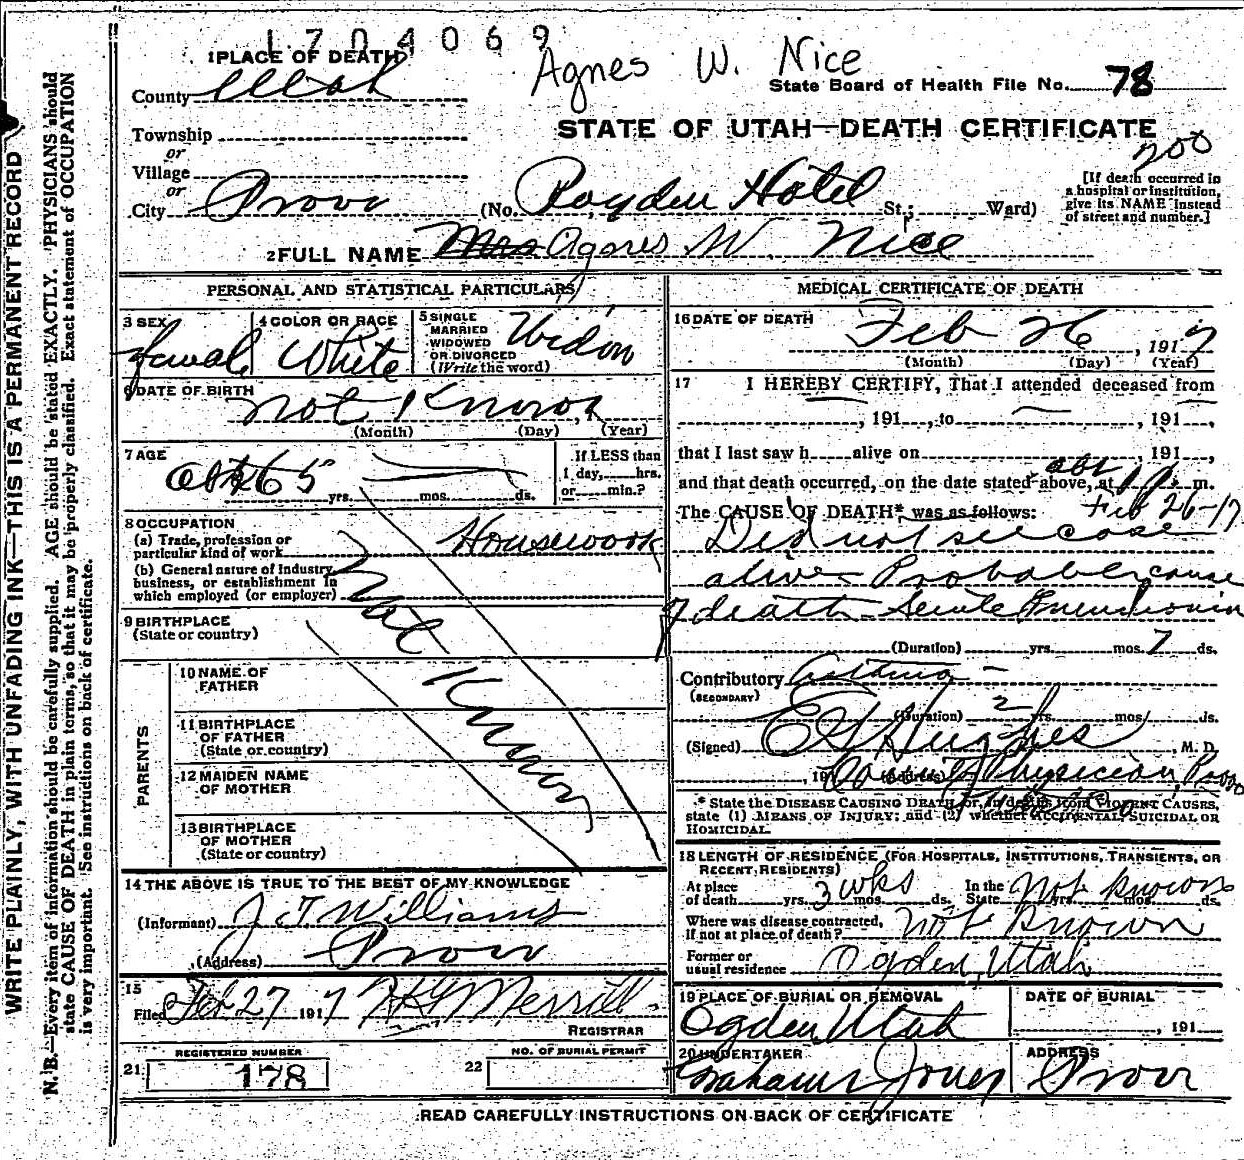 1704069
Agnes W. Nice
1 PLACE OF DEATH
State Board of Health File No. 78
County Utah
STATE OF UTAH—DEATH CERTIFICATE
200
Township
or
Village
or
City Provo (No. Royden Hotel St.; Ward)
[If death occurred in
a hospital or institution,
give its NAME instead
of street and number.]
2 FULL NAME Mrs Agnes W. Nice
PERSONAL AND STATISTICAL PARTICULARS
3 SEX
Female
4 COLOR OR RACE
White
5 SINGLE
MARRIED
WIDOWED
OR DIVORCED
(Write the word)
Widow
6 DATE OF BIRTH
Not Known, 1
(Month) (Day) (Year)
7 AGE
abt 65 yrs. mos. ds.
If LESS than
1 day, hrs.
or min.?
8 OCCUPATION
(a) Trade, profession or
particular kind of work Housework
(b) General nature of Industry,
business, or establishment in
which employed (or employer)
9 BIRTHPLACE
(State or country)
Not Known
PARENTS
10 NAME OF
FATHER
11 BIRTHPLACE
OF FATHER
(State or country)
12 MAIDEN NAME
OF MOTHER
13 BIRTHPLACE
OF MOTHER
(State or country)
14 THE ABOVE IS TRUE TO THE BEST OF MY KNOWLEDGE
(Informant) J. T. Williams
(Address) Provo
15
Filed Feb 27 1917 Merrill
REGISTRAR
REGISTERED NUMBER
21 178
NO. OF BURIAL PERMIT
22
MEDICAL CERTIFICATE OF DEATH
16 DATE OF DEATH
Feb 26, 1917
(Month) (Day) (Year)
17 I HEREBY CERTIFY, That I attended deceased from
, 191 , to , 191 ,
that I last saw h alive on , 191 ,
and that death occurred, on the date stated above, at abt 1 P. m.
The CAUSE OF DEATH* was as follows: Feb 26-17
Did not see case
alive Probable cause
of death Pneumonia
(Duration) yrs. mos. 7 ds.
Contributory Asthma
(SECONDARY)
(Duration) 2 yrs. mos. ds.
(Signed) Hughes, M. D.
, 191 (Address) County Physician, Provo
* State the DISEASE CAUSING DEATH, or, in deaths from VIOLENT CAUSES,
state (1) MEANS OF INJURY; and (2) whether ACCIDENTAL, SUICIDAL OR
HOMICIDAL.
18 LENGTH OF RESIDENCE (FOR HOSPITALS, INSTITUTIONS, TRANSIENTS, OR
RECENT RESIDENTS)
At place
of death yrs. 3 wks mos. ds.
In the
State Not Known yrs. mos. ds.
Where was disease contracted,
If not at place of death? Not Known
Former or
usual residence Ogden, Utah
19 PLACE OF BURIAL OR REMOVAL
Ogden, Utah
DATE OF BURIAL
, 191
20 UNDERTAKER
Jones
ADDRESS
Provo
READ CAREFULLY INSTRUCTIONS ON BACK OF CERTIFICATE
WRITE PLAINLY, WITH UNFADING INK—THIS IS A PERMANENT RECORD
N. B.—Every item of information should be carefully supplied. AGE should be stated EXACTLY. PHYSICIANS should
state CAUSE OF DEATH in plain terms, so that it may be properly classified. Exact statement of OCCUPATION
is very important. See instructions on back of certificate.